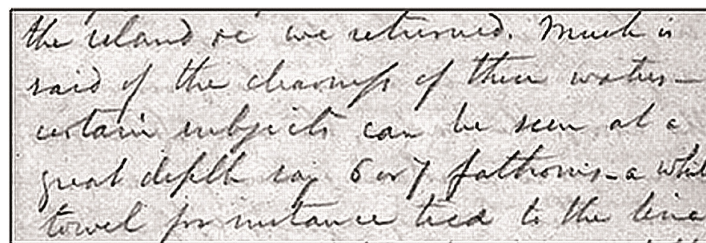 the island &c we returned. Much is
said of the clearness of these waters –
certain subjects can be seen at a
great depth say 6 or 7 fathoms – a whi
towel for instance tied to the line